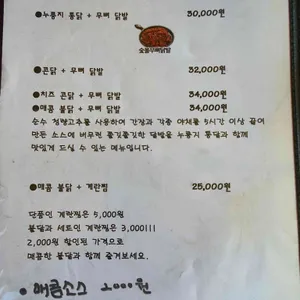 ●누룽지 통닭 + 무뼈 닭발 30,000원
숯불무뼈닭발
●콘닭 + 무뼈 닭발 32,000원
●치즈 콘닭 + 무뼈 닭발 34,000원
●매콤 불닭 + 무뼈 닭발 34,000원
순수 청량고추를 사용하여 간장과 각종 야채를 5시간 이상 끓여
만든 소스에 버무린 쫄깃쫄깃한 닭발을 누룽지 통닭과 함께
맛있게 드실 수 있는 메뉴입니다.
●매콤 불닭 + 계란찜 25,000원
단품인 계란찜은 5,000원
불닭과 세트인 계란찜은 3,000!!!
2,000원 할인된 가격으로
매콤한 불닭과 함께 즐겨보세요.
● 매콤소스 2000원